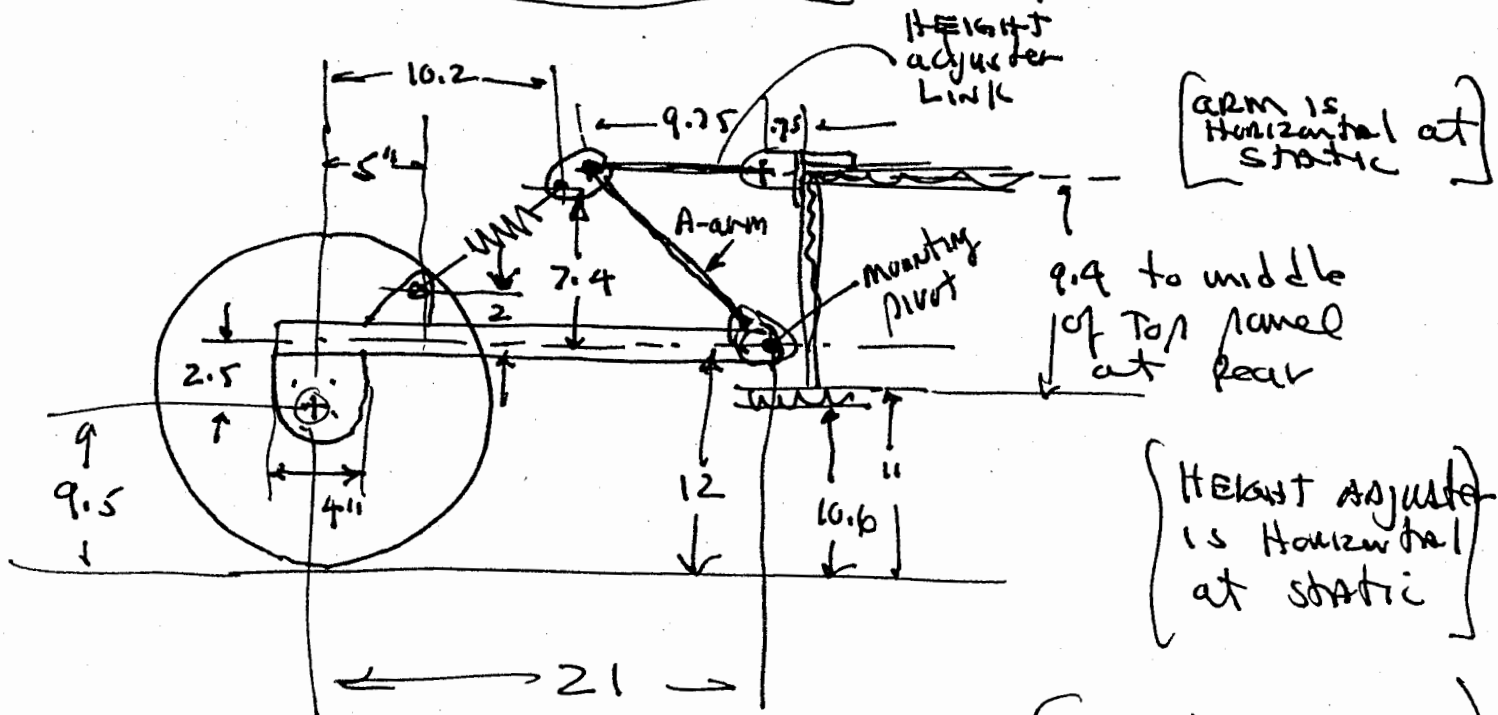 HEIGHT
adjuster
LINK
10.2
9.75
.75
5"
[arm is
Horizontal at
static]
A-arm
mounting
pivot
7.4
2
9.9 to middle
of Top panel
at Rear
2.5
9.5
4"
12
10.6
11
[HEIGHT ADJUSTER
is Horizontal
at static]
21